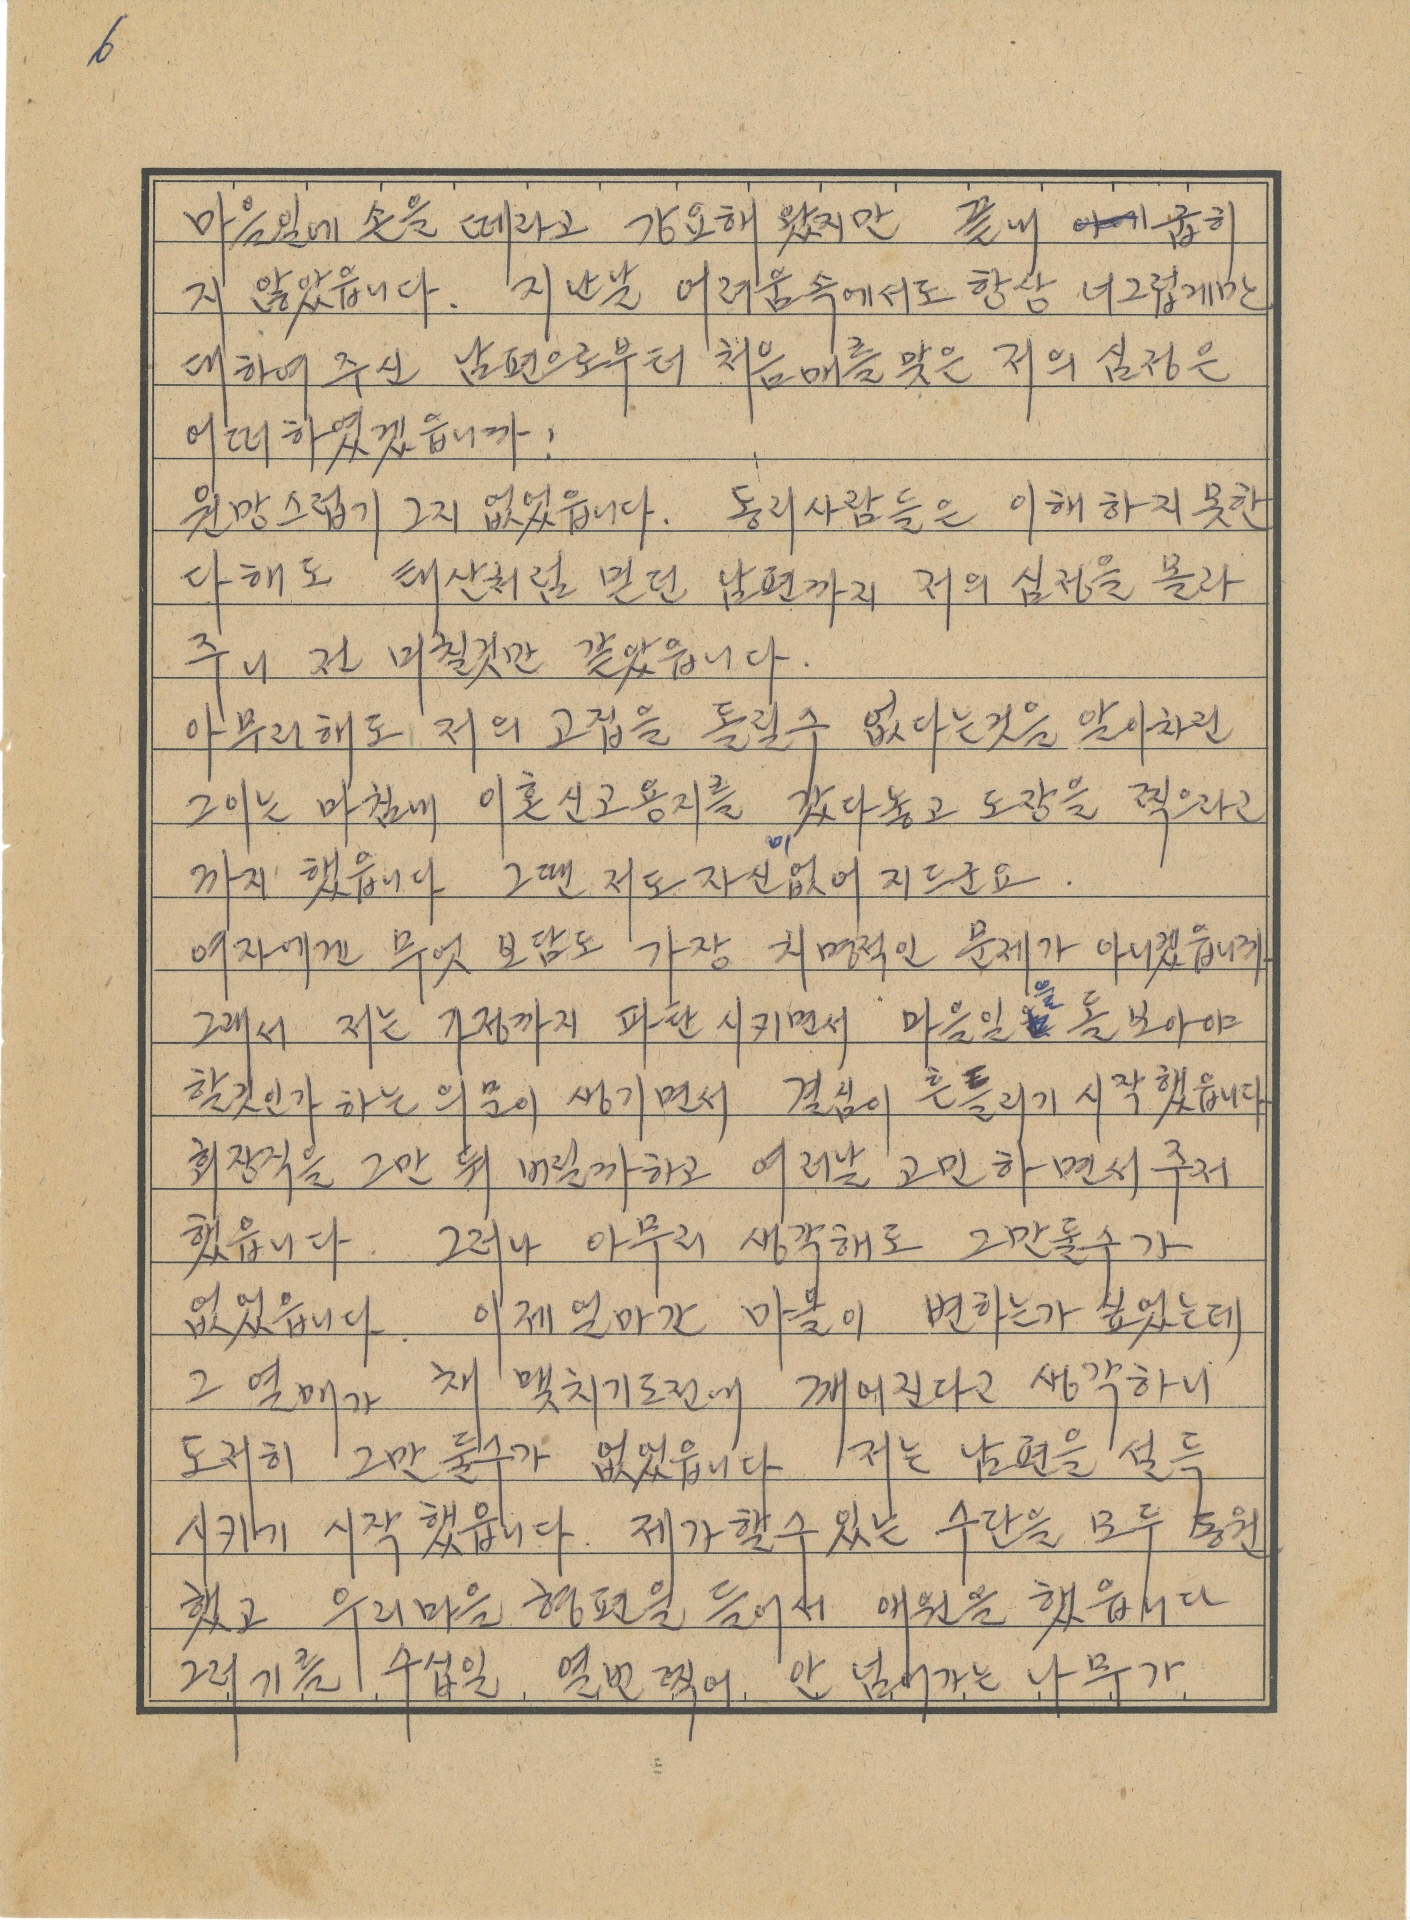 6
마음일에 손을 떼라고 강요해 왔지만 끝내 굽히
지 않았읍니다. 지난날 어려움속에서도 항상 너그럽게만
대하여 주신 남편으로부터 처음 매를 맞은 저의 심정은
어떠하였겠읍니까!
원망스럽기 그지 없었읍니다. 동리사람들은 이해하지 못한
다해도 태산처럼 믿던 남편까지 저의 심정을 몰라
주니 전 미칠것만 같았읍니다.
아무리해도 저의 고집을 돌릴수 없다는것을 알아차린
그이는 마침내 이혼신고용지를 갔다놓고 도장을 찍으라고
까지 했읍니다 그땐 저도 자신이 없어 지드군요.
여자에겐 무엇 보담도 가장 치명적인 문제가 아니겠읍니까
그래서 저는 가정까지 파탄 시키면서 마을일을 돌보아야
할것인가 하는 의문이 생기면서 결심이 흔들리기 시작했읍니다
회장직을 그만 둬 버릴까하고 여러날 고민 하면서 주저
했읍니다. 그러나 아무리 생각해도 그만둘수가
없었읍니다. 이제 얼마간 마을이 변하는가 싶었는데
그 열매가 채 맺치기도전에 깨어진다고 생각하니
도저히 그만 둘수가 없었읍니다 저는 남편을 설득
시키기 시작했읍니다. 제가할수있는 수단을 모두 동원
했고 우리마을 형편을 들어서 애원을 했읍니다
그러기를 수십일 열번찍어 안 넘어가는 나무가